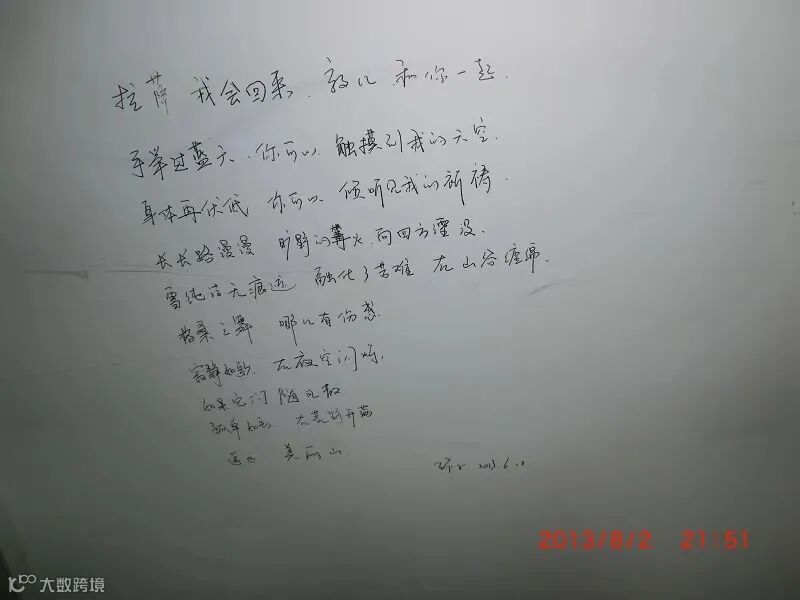 拉萨 我会回来、敦儿 和你一起.
手举过蓝天、你可以 触摸到我的天空.
身体再伏低 你可以 倾听见我的祈祷.
长长路漫漫 旷野的篝火、向四方湮没.
雪纯洁无痕迹 融化了苦难 在山谷缠绵.
格桑之舞 哪儿有伤感
寂静如歌、在夜空闪烁.
如果它们随风散
孤单如 在荒野开满
美丽山.
2013.6.
2013/8/2 21:51
大数跨境